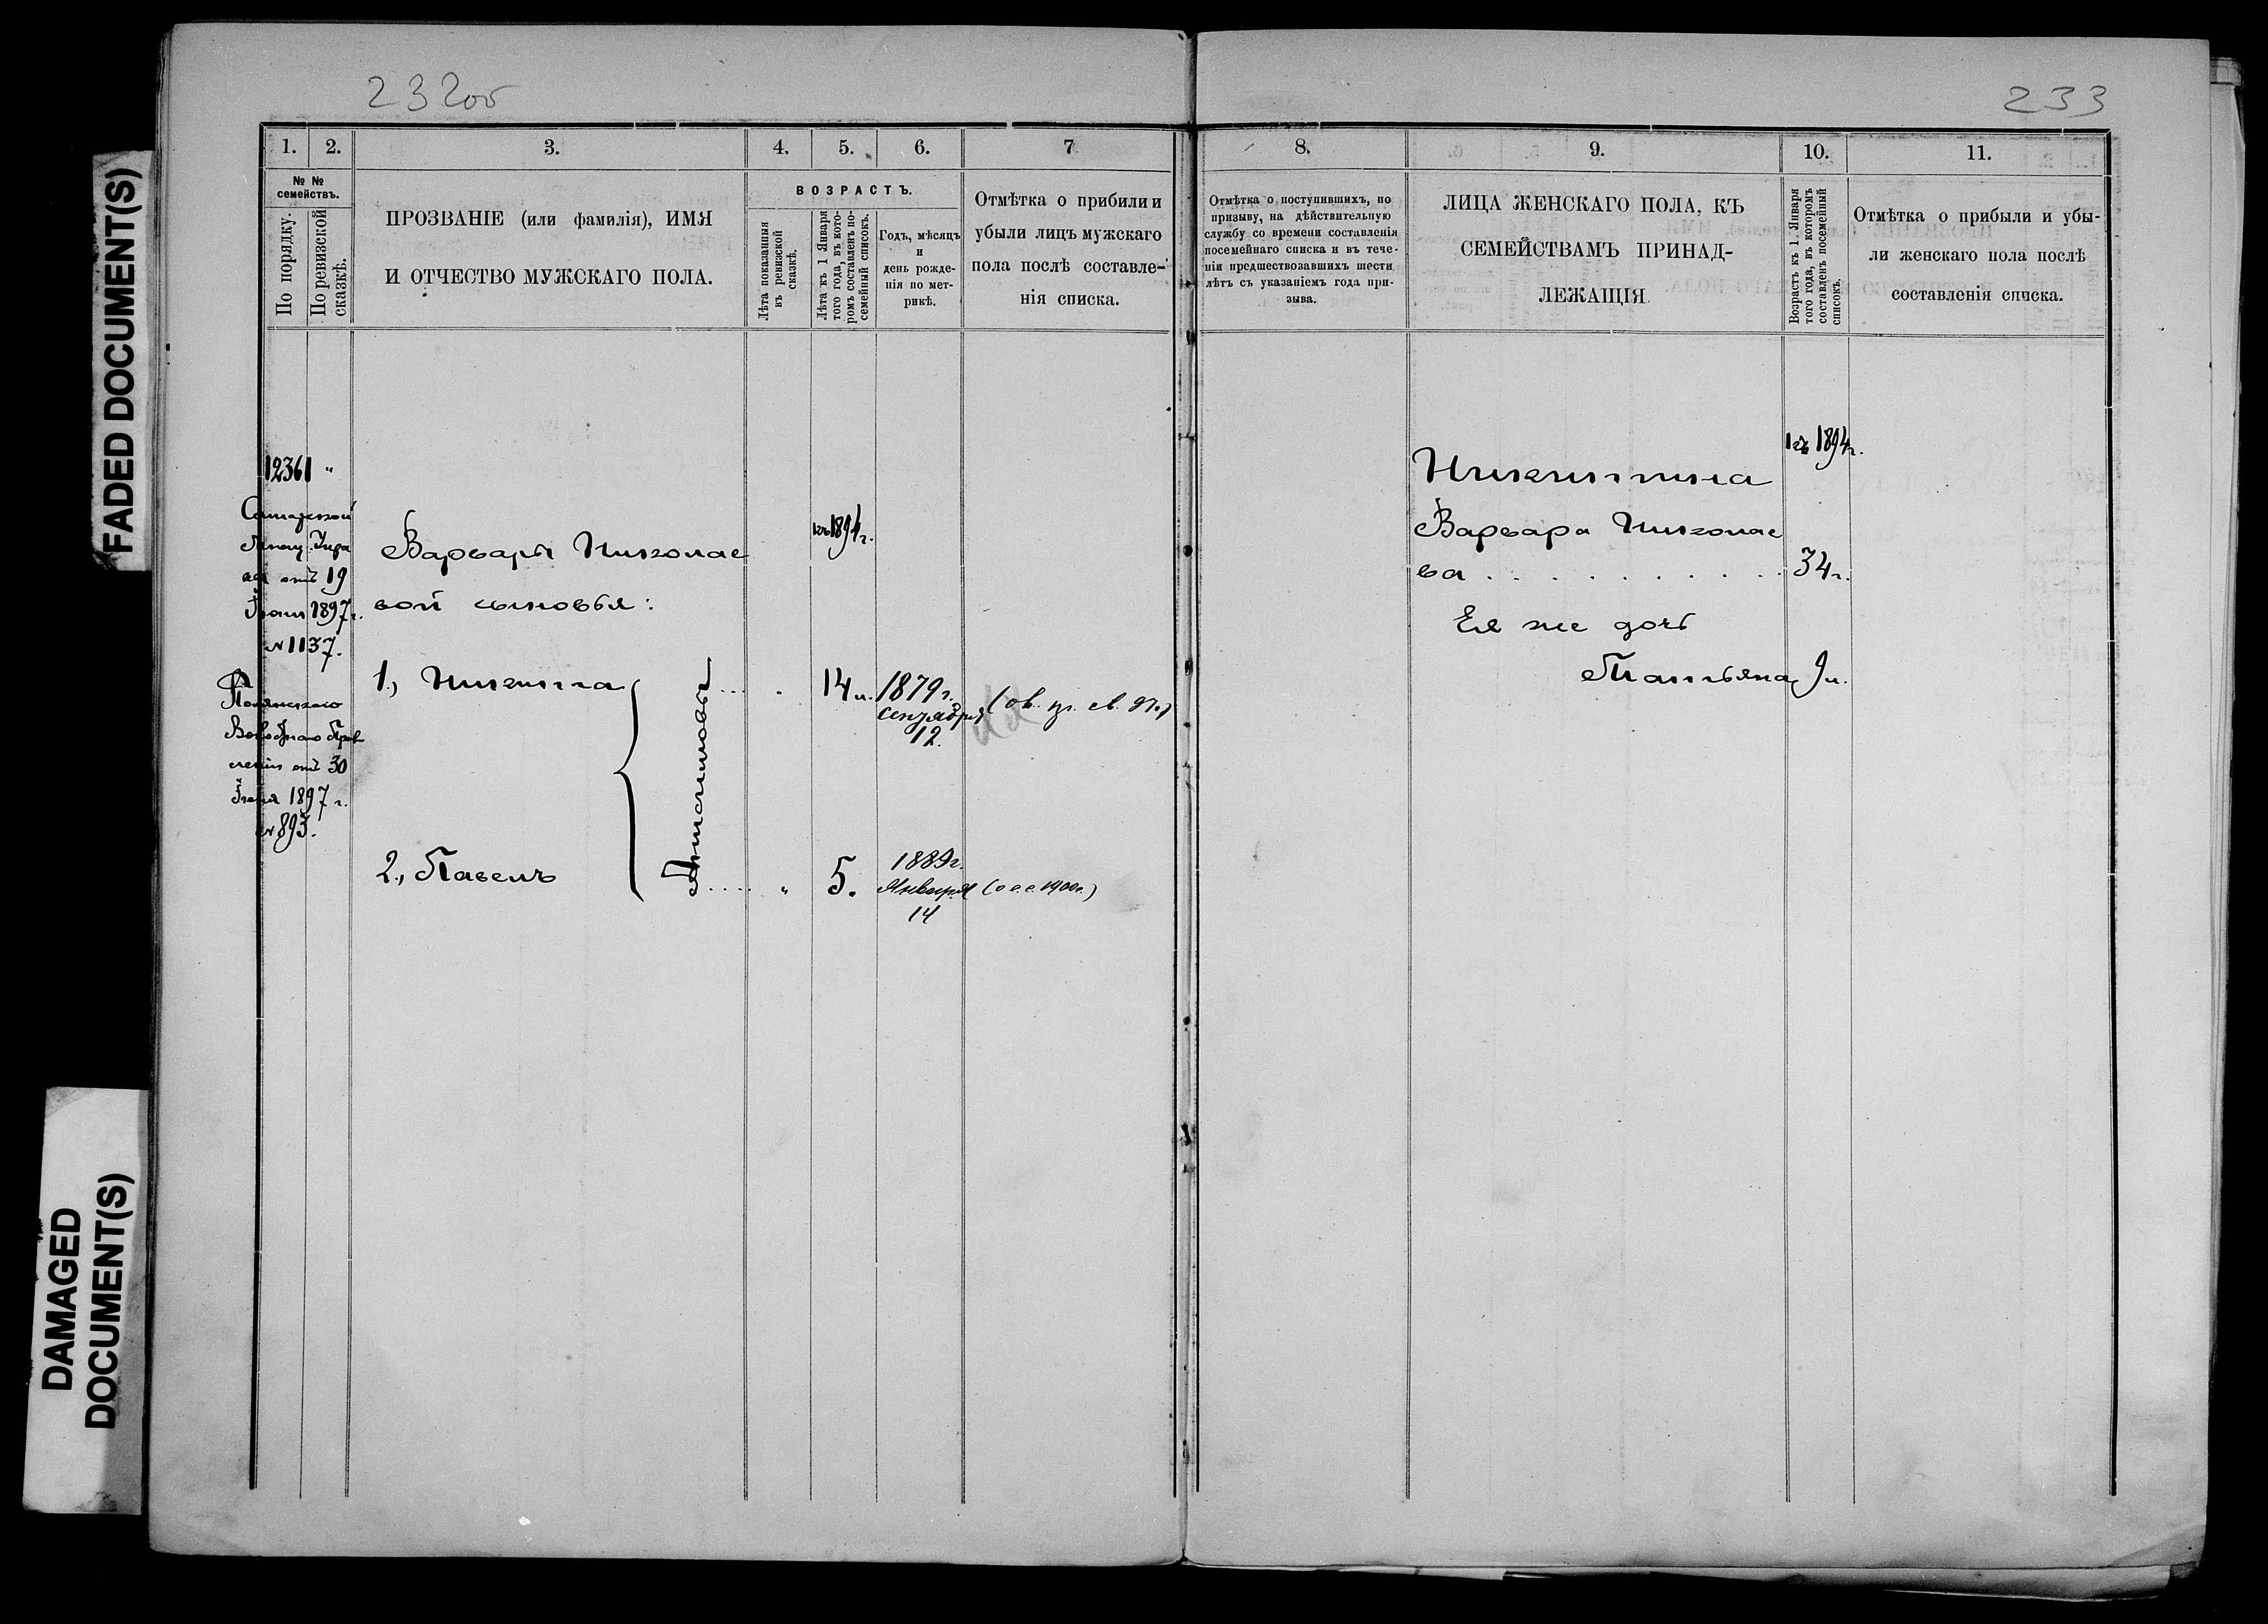 FADED DOCUMENT(S)
DAMAGED
DOCUMENT(S)
232об
1.
2.
3.
4.
5.
6.
7
№ №
семействъ.
По порядку.
По ревизской
сказкѣ.
ПРОЗВАНІЕ (или фамилія), ИМЯ
И ОТЧЕСТВО МУЖСКАГО ПОЛА.
ВОЗРАСТЪ.
Лѣта показанныя
въ ревизской
сказкѣ.
Лѣта къ 1 Января
того года, въ кото-
ромъ составленъ по-
семейный списокъ.
Годъ, мѣсяцъ
и
день рожде-
нія по мет-
рикѣ.
Отмѣтка о прибыли и
убыли лицъ мужскаго
пола послѣ составле-
нія списка.
12361 "
Самарской
от 19
1897 г.
№ 1137.
от 30
1897 г.
№ 893.
къ 1894 г.
Варвары Николае
вой сыновья:
1., Никита
14 л.
1879 г.
Сентября
12.
2., Павелъ
" 5.
1889 г.
Января (о с.с. 1900 г.)
14
233
8.
9.
10.
11.
Отмѣтка о поступившихъ, по
призыву, на дѣйствительную
службу со времени составленія
посемейнаго списка и въ тече-
ніи предшествовавшихъ шести
лѣтъ съ указаніемъ года при-
зыва.
ЛИЦА ЖЕНСКАГО ПОЛА, КЪ
СЕМЕЙСТВАМЪ ПРИНАД-
ЛЕЖАЩІЯ
Возрастъ къ 1 Января
того года, въ которомъ
составленъ посемейный
списокъ.
Отмѣтка о прибыли и убы-
ли женскаго пола послѣ
составленія списка.
къ 1894 г.
Никитина
Варвара Николае
ва . . . . . . . . . . 34 г.
Ея же дочь
Татьяна 9 л.